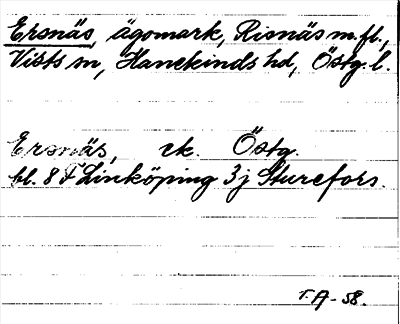 Ersnäs, ägomark, Risnäs m.fl.,
Vists sn, Hanekinds hd, Östg. l.
Ersnäs, ek. Östg.
bl. 8 F Linköping 3 j Sturefors.
T.A-58.